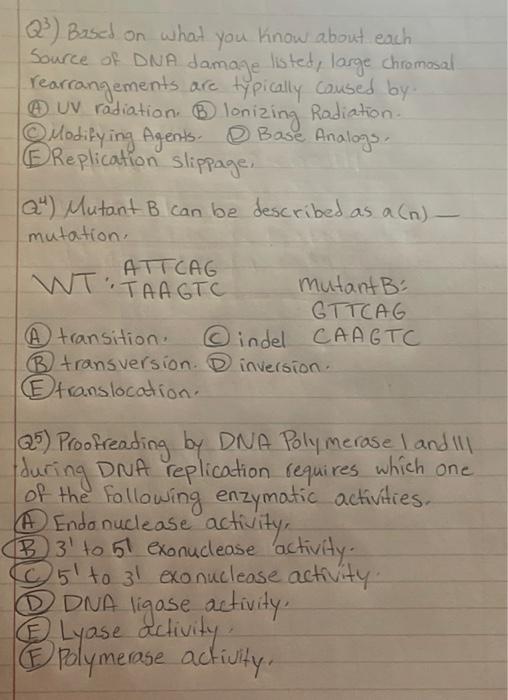 Q3) Based on what you know about each
Source of DNA damage listed, large chromosal
rearrangements are typically caused by.
A UV radiation. B Ionizing Radiation.
C Modifying Agents. D Base Analogs.
E Replication slippage.
Q4) Mutant B can be described as a(n) —
mutation.
WT: ATTCAG
TAAGTC
mutant B:
GTTCAG
CAAGTC
A transition. C indel
B transversion. D inversion.
E translocation.
Q5) Proofreading by DNA Polymerase I and III
during DNA replication requires which one
of the following enzymatic activities.
A Endonuclease activity.
B 3' to 5' exonuclease activity.
C 5' to 3' exonuclease activity.
D DNA ligase activity.
E Lyase activity.
F Polymerase activity.